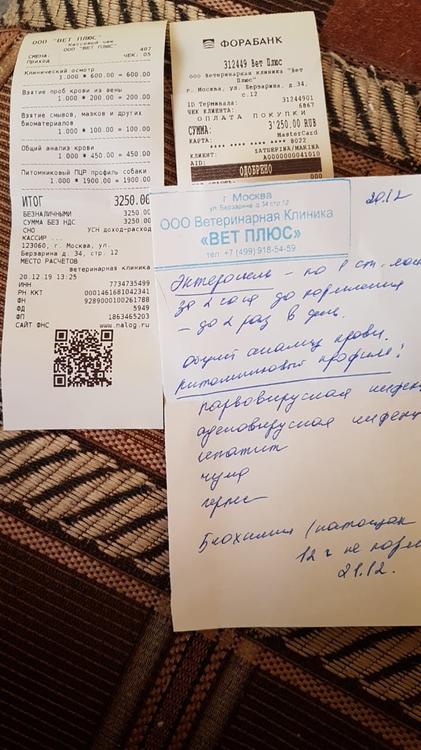 ООО "ВЕТ ПЛЮС"
Кассовый чек
ООО "ВЕТ ПЛЮС"
СМЕНА: 407
Приход ЧЕК: 05
Клинический осмотр
1.000 * 600.00 = 600.00
Взятие проб крови из вены
1.000 * 200.00 = 200.00
Взятие смывов, мазков и других
биоматериалов
1.000 * 100.00 = 100.00
Общий анализ крови
1.000 * 450.00 = 450.00
Питомниковый ПЦР профиль собаки
1.000 * 1900.00 = 1900.00
ИТОГ 3250.00
БЕЗНАЛИЧНЫМИ 3250.00
СУММА БЕЗ НДС 3250.00
СНО УСН доход-расход
КАССИР ...
123060, г. Москва, ул.
Берзарина д. 34, стр. 12
МЕСТО РАСЧЕТОВ
ветеринарная клиника
20.12.19 13:25
ИНН 7734735499
РН ККТ 0001461681042341
ФН 9289000100261788
ФД 5949
ФП 1863465203
САЙТ ФНС www.nalog.ru
ФОРАБАНК
312449 Вет Плюс
ООО Ветеринарная клиника "Вет
Плюс"
г. Москва, ул. Берзарина, д.34,
с.12
ID Терминала: 31244901
ЧЕК КЛИЕНТА: 6867
ОПЛАТА ПОКУПКИ
СУММА: 3'250.00 RUB
КАРТА: MasterCard
8022
КЛИЕНТ: SATSERINA/MARINA
AID: A0000000041010
ОДОБРЕНО
000
г. Москва
ул. Берзарина д.34 стр.12
ООО Ветеринарная Клиника
«ВЕТ ПЛЮС»
тел. +7 (499) 918-54-59
20.12
Энтеросгель – по 1 ст.
за 2 часа до кормления
– до 2 раз в день.
общий анализ крови.
питомниковый профиль!
парвовирусная
аденовирусная
гепатит
чума
герпес
Биохимия (натощак
12 ч не
21.12.